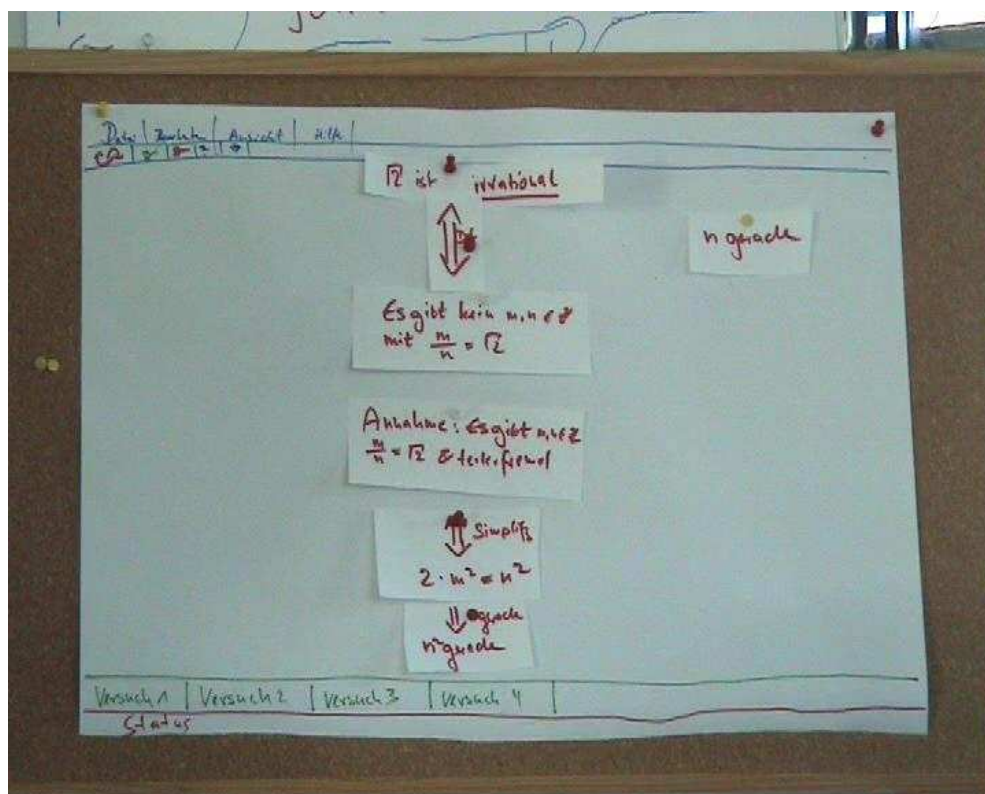 Datei | Bearbeiten | Ansicht | Hilfe |
√2 ist irrational
n gerade
Es gibt kein m,n ∈ Z
mit m/n = √2
Annahme: Es gibt m,n ∈ Z
m/n = √2 & teilerfremd
⇓ Simplify
2 · m² = n²
⇓ gerade
n² gerade
Versuch 1 | Versuch 2 | Versuch 3 | Versuch 4 |
Status